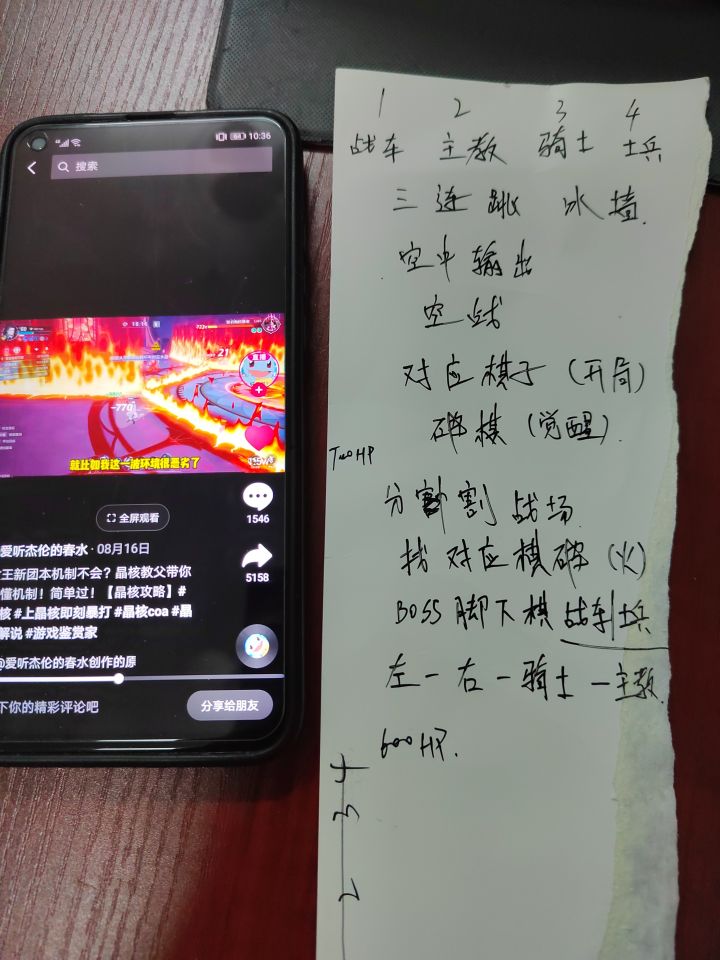 10:36
搜索
18:14
直播
21
-770
就比如我这一波环境很恶劣了
全屏观看
1546
爱听杰伦的春水 · 08月16日
5158
王新团本机制不会？晶核教父带你
懂机制！简单过！【晶核攻略】#
核 #上晶核即刻暴打 #晶核coa #晶
解说 #游戏鉴赏家
@爱听杰伦的春水创作的原
下你的精彩评论吧
分享给朋友
1 2 3 4
战车 主教 骑士 士兵
三连跳 冰墙
空中输出
空战
对应棋子（开局）
碎棋（觉醒）.
700HP
分割战场
找对应棋碎（火）
BOSS脚下棋战车士兵
左一右一骑士一主教
600HP.
4
3
2